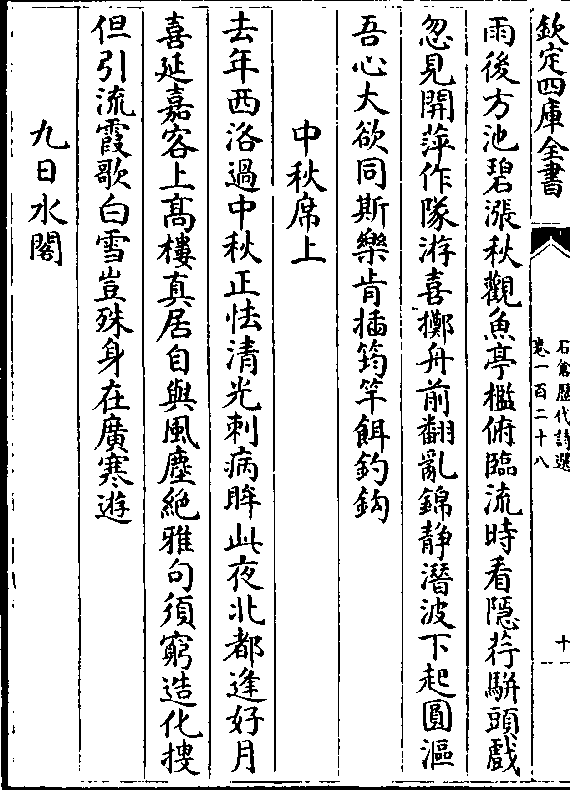 欽定四庫全書
石倉歷代詩選
卷一百二十八
十
雨後方池碧漲秋觀魚亭檻俯臨流時看隱荇駢頭戲
忽見開萍作隊游喜擲舟前翻亂錦静潛波下起圓漚
吾心大欲同斯樂肯插筠竿餌釣鈎
中秋席上
去年西洛過中秋正怯清光刺病眸此夜北都逢好月
喜延嘉客上髙樓真居自與風塵絶雅句須窮造化搜
但引流霞歌白雪豈殊身在廣寒遊
九日水閣